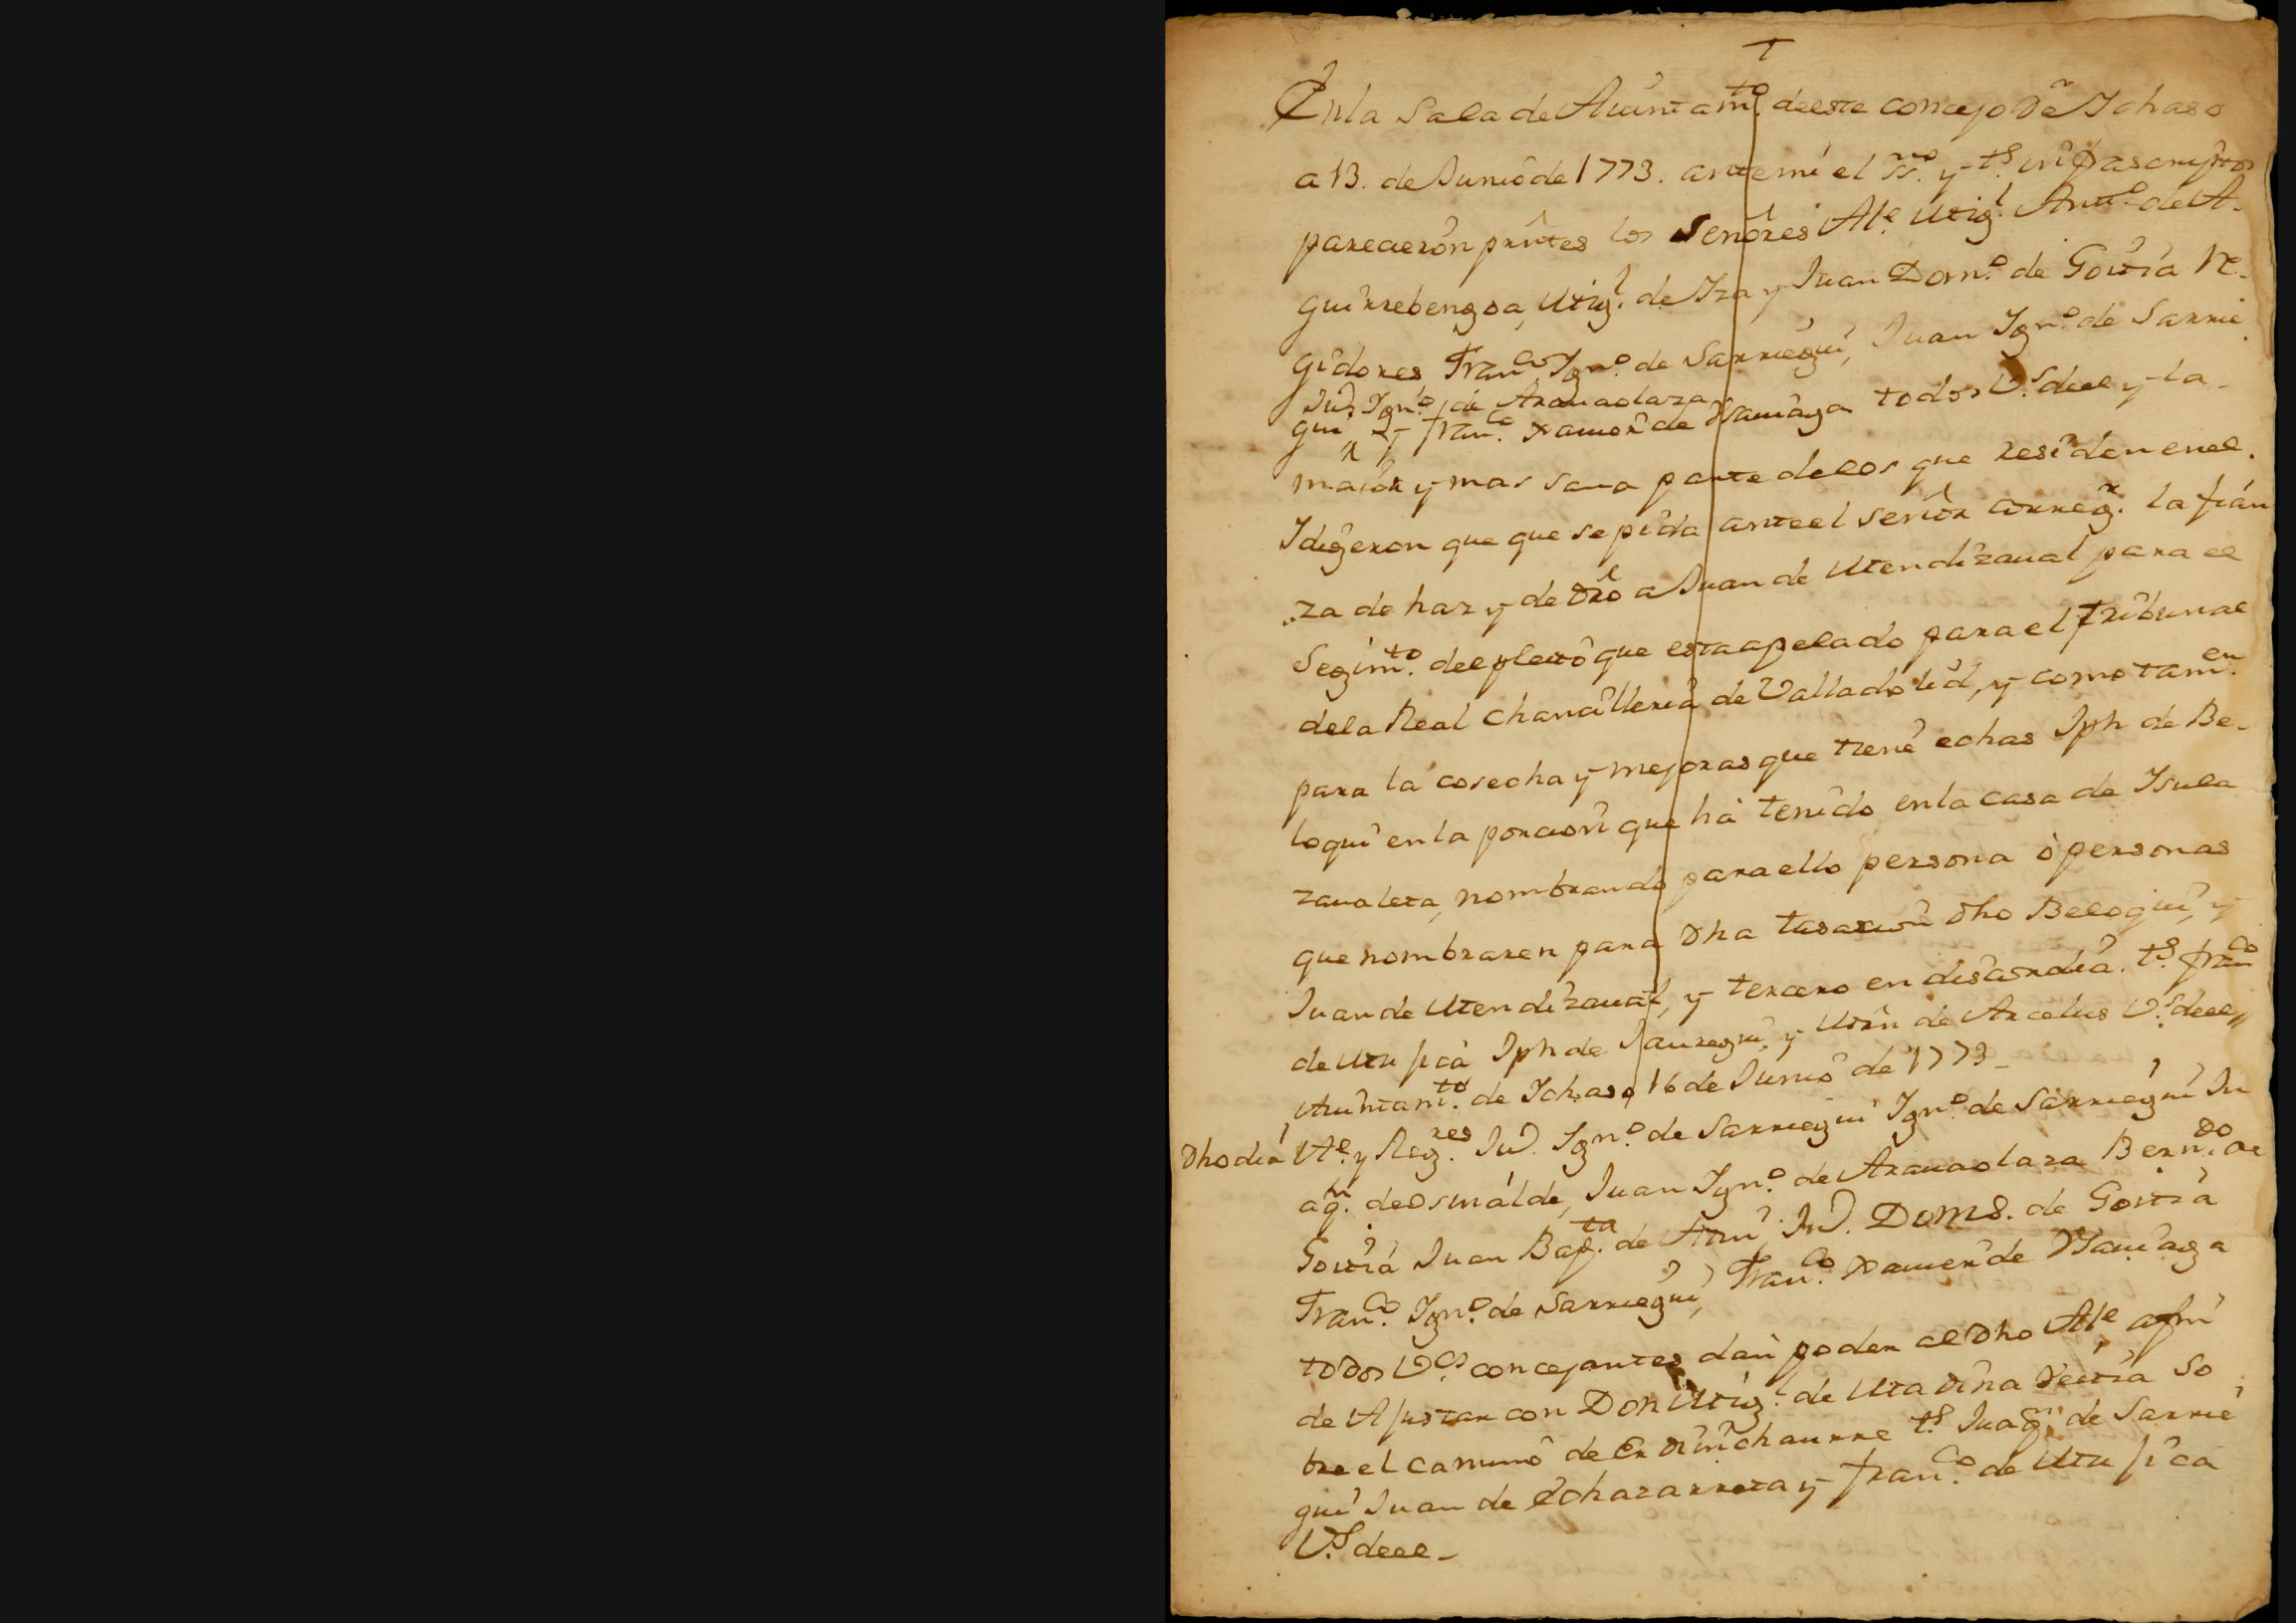 En la Sala de Aiuntamto. de este concejo de Ichaso
a 13. de Junio de 1773. ante mi el ssno. y ts. infrascriptos
parecieron prntes los Señores Ale. Migl. Anto. de A-
guirrebengoa, Migl. de Iza y Juan Domo. de Goitia Re-
gidores, Franco. Igno. de Sarriegui, Juan Igno. de Sarrie
Jun. Igno. de Aramaolaza
gui y Franco. Xavier de Usauiaga todos Vs. de el y la
maior y mas sana parte de los que residen en el.
I digeron que que se pida ante el señor correxr. la fian
za de haz y de dro a Juan de Mendizaual para el
Segimto. del pleito que esta apelado para el tribunal
de la Real chancilleria de Valladolid, y como tamen.
para la cosecha y mejoras que tiene echas Iph de Be-
loqui en la porcion que ha tenido en la casa de Isula
zaualeta, nombrando para ello persona ò personas
que nombraren para dha tasacion dho Beloqui, y
Juan de Mendizaual, y tercero en discordia. ts. Franco
de Mujica Iph de Jauregui, y Mrn de Arcelus Vs. de el
Aiuntamto. de Ichaso, 16 de Junio de 1773-
Dho dia Ale. y Regres. Jun. Igno. de Sarriegui Igno. de Sarriegui Ju
aqn. de Osinalde, Juan Igno. de Aramaolaza Berndo. de
Goitia Juan Bapta. de Jun. Doms. de Goitia
Franco. Igno. de Sarriegui, Franco. Xauier de Usauiaga
todos Vs. concejantes dan poder al dho Ale afin
de Ajustar con Don Migl. de Madinaveitia so
bre el camino de Erdinchaurre ts. Juaqn. de Sarrie
gui Juan de Echazarreta y Franco. de Mujica
Vs. de el-